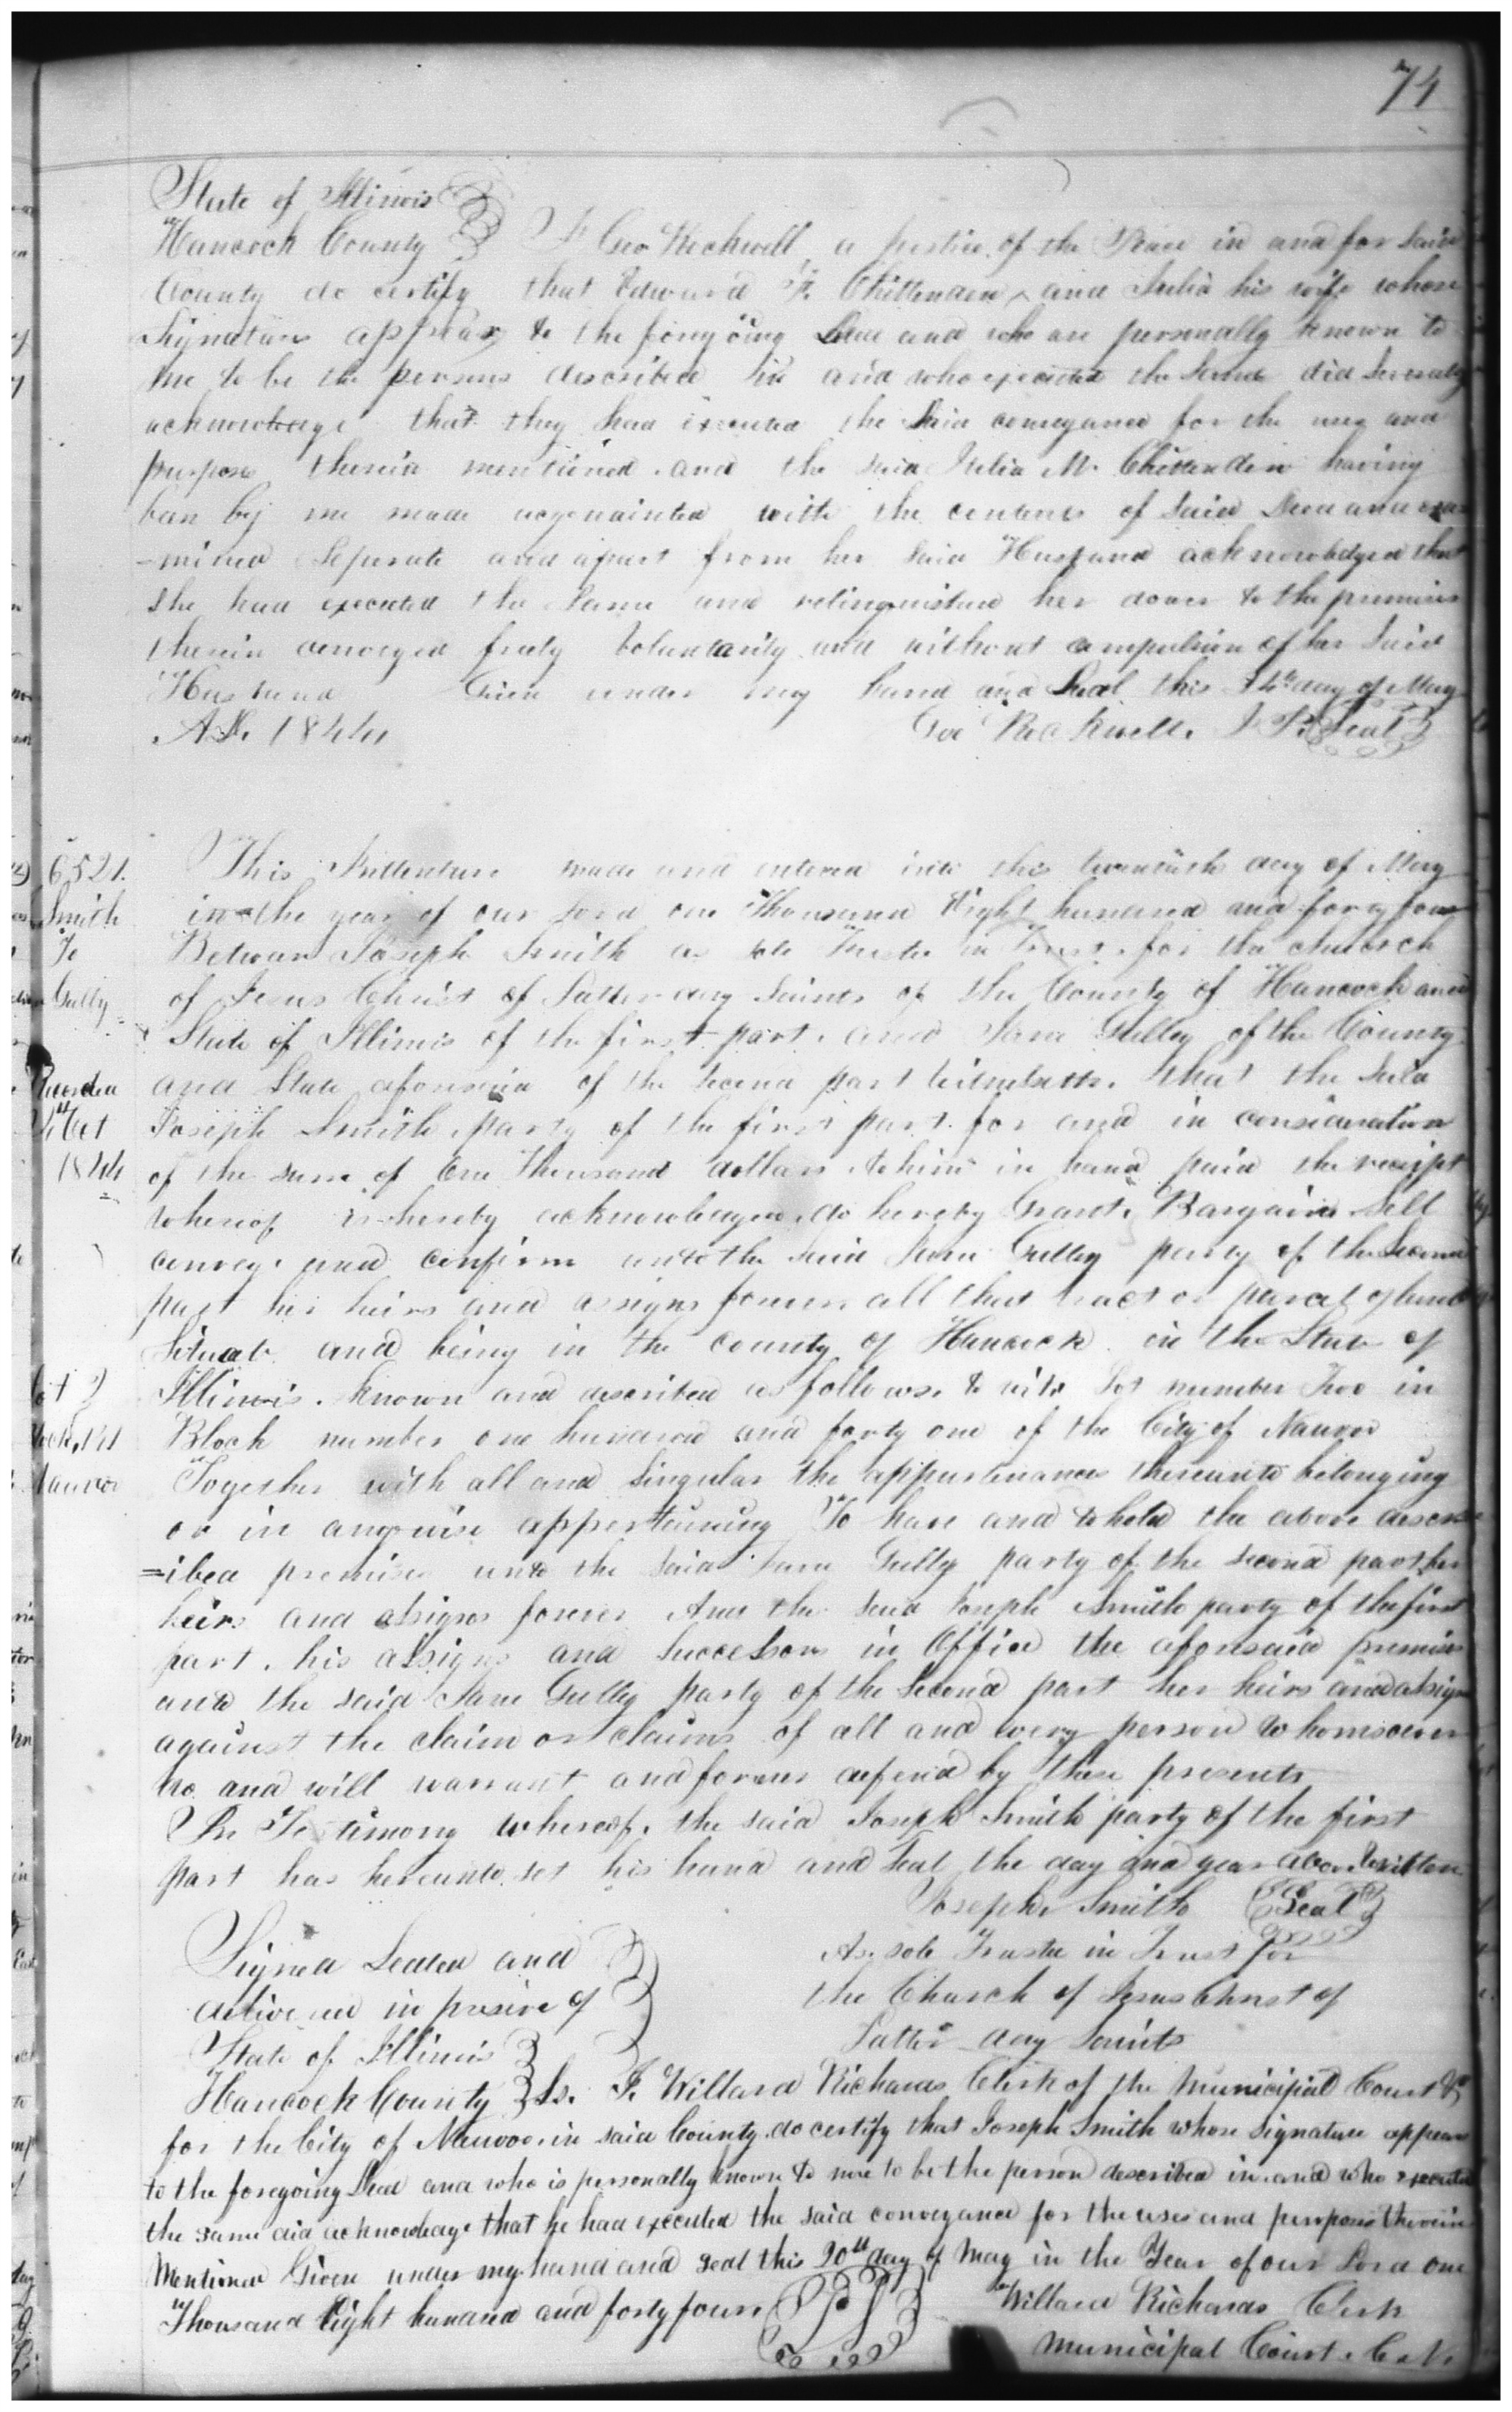 74
State of Illinois
Hancock County I Geo Rockwell, a Justice of the Peace in and for said
County do certify that Edward F. Chittenden, and Julia his wife whose
Signatures appear to the foregoing Deed and who are personally known to
me to be the persons described in and who executed the same did severally
acknowledge that they had executed the said conveyance for the uses and
purposes therein mentioned. and the said Julia M. Chittenden having
been by me made acquainted with the contents of said Deed and exa-
-mined seperate and apart from her said Husband acknowledged that
She had executed the same and relinquished her dower to the premises
therein conveyed freely Voluntarily and without compulsion of her said
Husband Given under my hand and Seal this day of May
A.D. 1844 Geo Rockwell. J P. Seal
6521. This Indenture made and entered into this twentieth day of May
Smith in the year of our Lord one Thousand Eight hundred and forty four
To Between Joseph Smith as sole Trustee in Trust. for the church
Gully of Jesus Christ of Latter day Saints of the County of Hancock and
State of Illinois of the first part. and Jane Gully of the County
Recorded and State aforesaid of the second part Witnesseth. that the said
Oct Joseph Smith party of the first part. for and in consideration
1844 of the sum of One Thousand dollars to him in hand paid the receipt
whereof is hereby acknowledged. do hereby Grant, Bargain Sell
convey. and confirm unto the said Jane Gulley party of the Second
part her heirs and assigns forever. all that tract or parcel of land
Situate and being in the county of Hancock. in the State of
Lot 2 Illinois. known and described as follows. to wit. Lot number Two in
Block 141 Block number one hundred and forty one of the City of Nauvoo
Nauvoo Together with all and Singular the appurtenances thereunto belonging
or in anywise appertaining To have and to hold the above descr
=ibed premises unto the said Jane Gully party of the second part her
heirs and assigns forever And the said Joseph Smith party of the first
part. his assigns and successors in Office the aforesaid premises
and the said Jane Gully party of the Second part her heirs and assigns
against the claim or claims of all and every person whomsoever
do and will warrant and forever defend by these presents
In Testimony whereof. the said Joseph Smith party of the first
part has hereunto set his hand and Seal the day and year above written
Joseph Smith Seal
Signed Sealed and As sole Trustee in Trust for
delivered in presence of the Church of Jesus Christ of
Latter day Saints
State of Illinois
Hancock County Ss. I. Willard Richards Clerk of the Municipal Court
for the City of Nauvoo. in said County. do certify that Joseph Smith whose signature appears
to the foregoing Deed and who is personally known to me to be the person described in. and who executed
the same did acknowledge that he had executed the said conveyance for the uses and purposes therein
Mentioned Given under my hand and seal this 20th day of May in the Year of our Lord one
Thousand Eight hundred and forty four Willard Richards Clerk
Municipal Court. C. N.